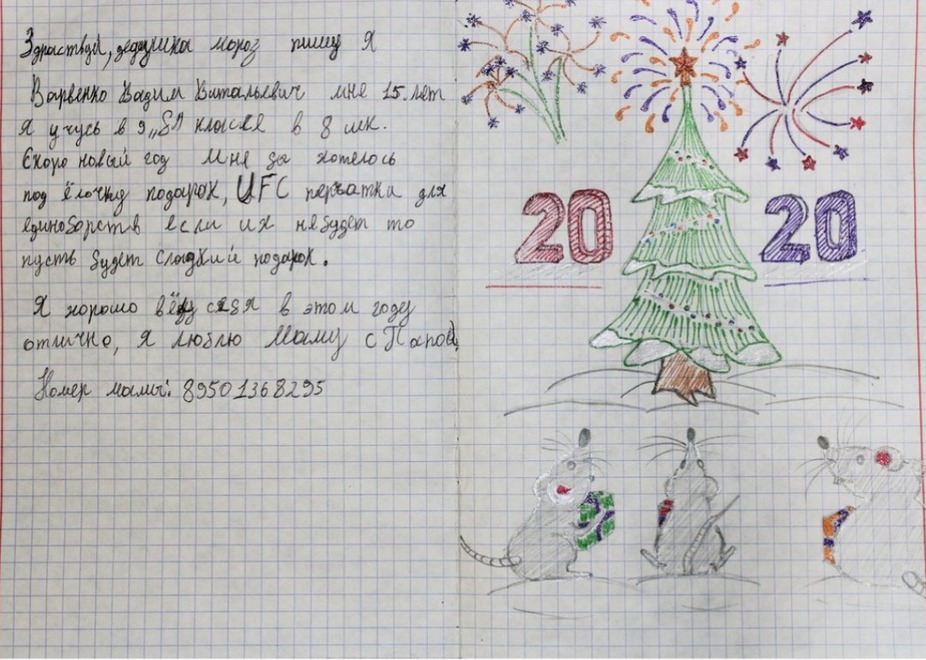 Здраствуй, дедушка мороз пишу я
Варвенко Вадим Витальевич мне 15 лет
Я учусь в 9 „Б" классе в 8 шк.
Скоро новый год мне за хотелось
под ёлочку подарок, UFC перчатки для
единоборств если их небудет то
пусть будет сладкий подарок.
Я хорошо вёл себя в этом году
отлично, я люблю Маму с Папой,
Номер мамы: 89501368295
20 20